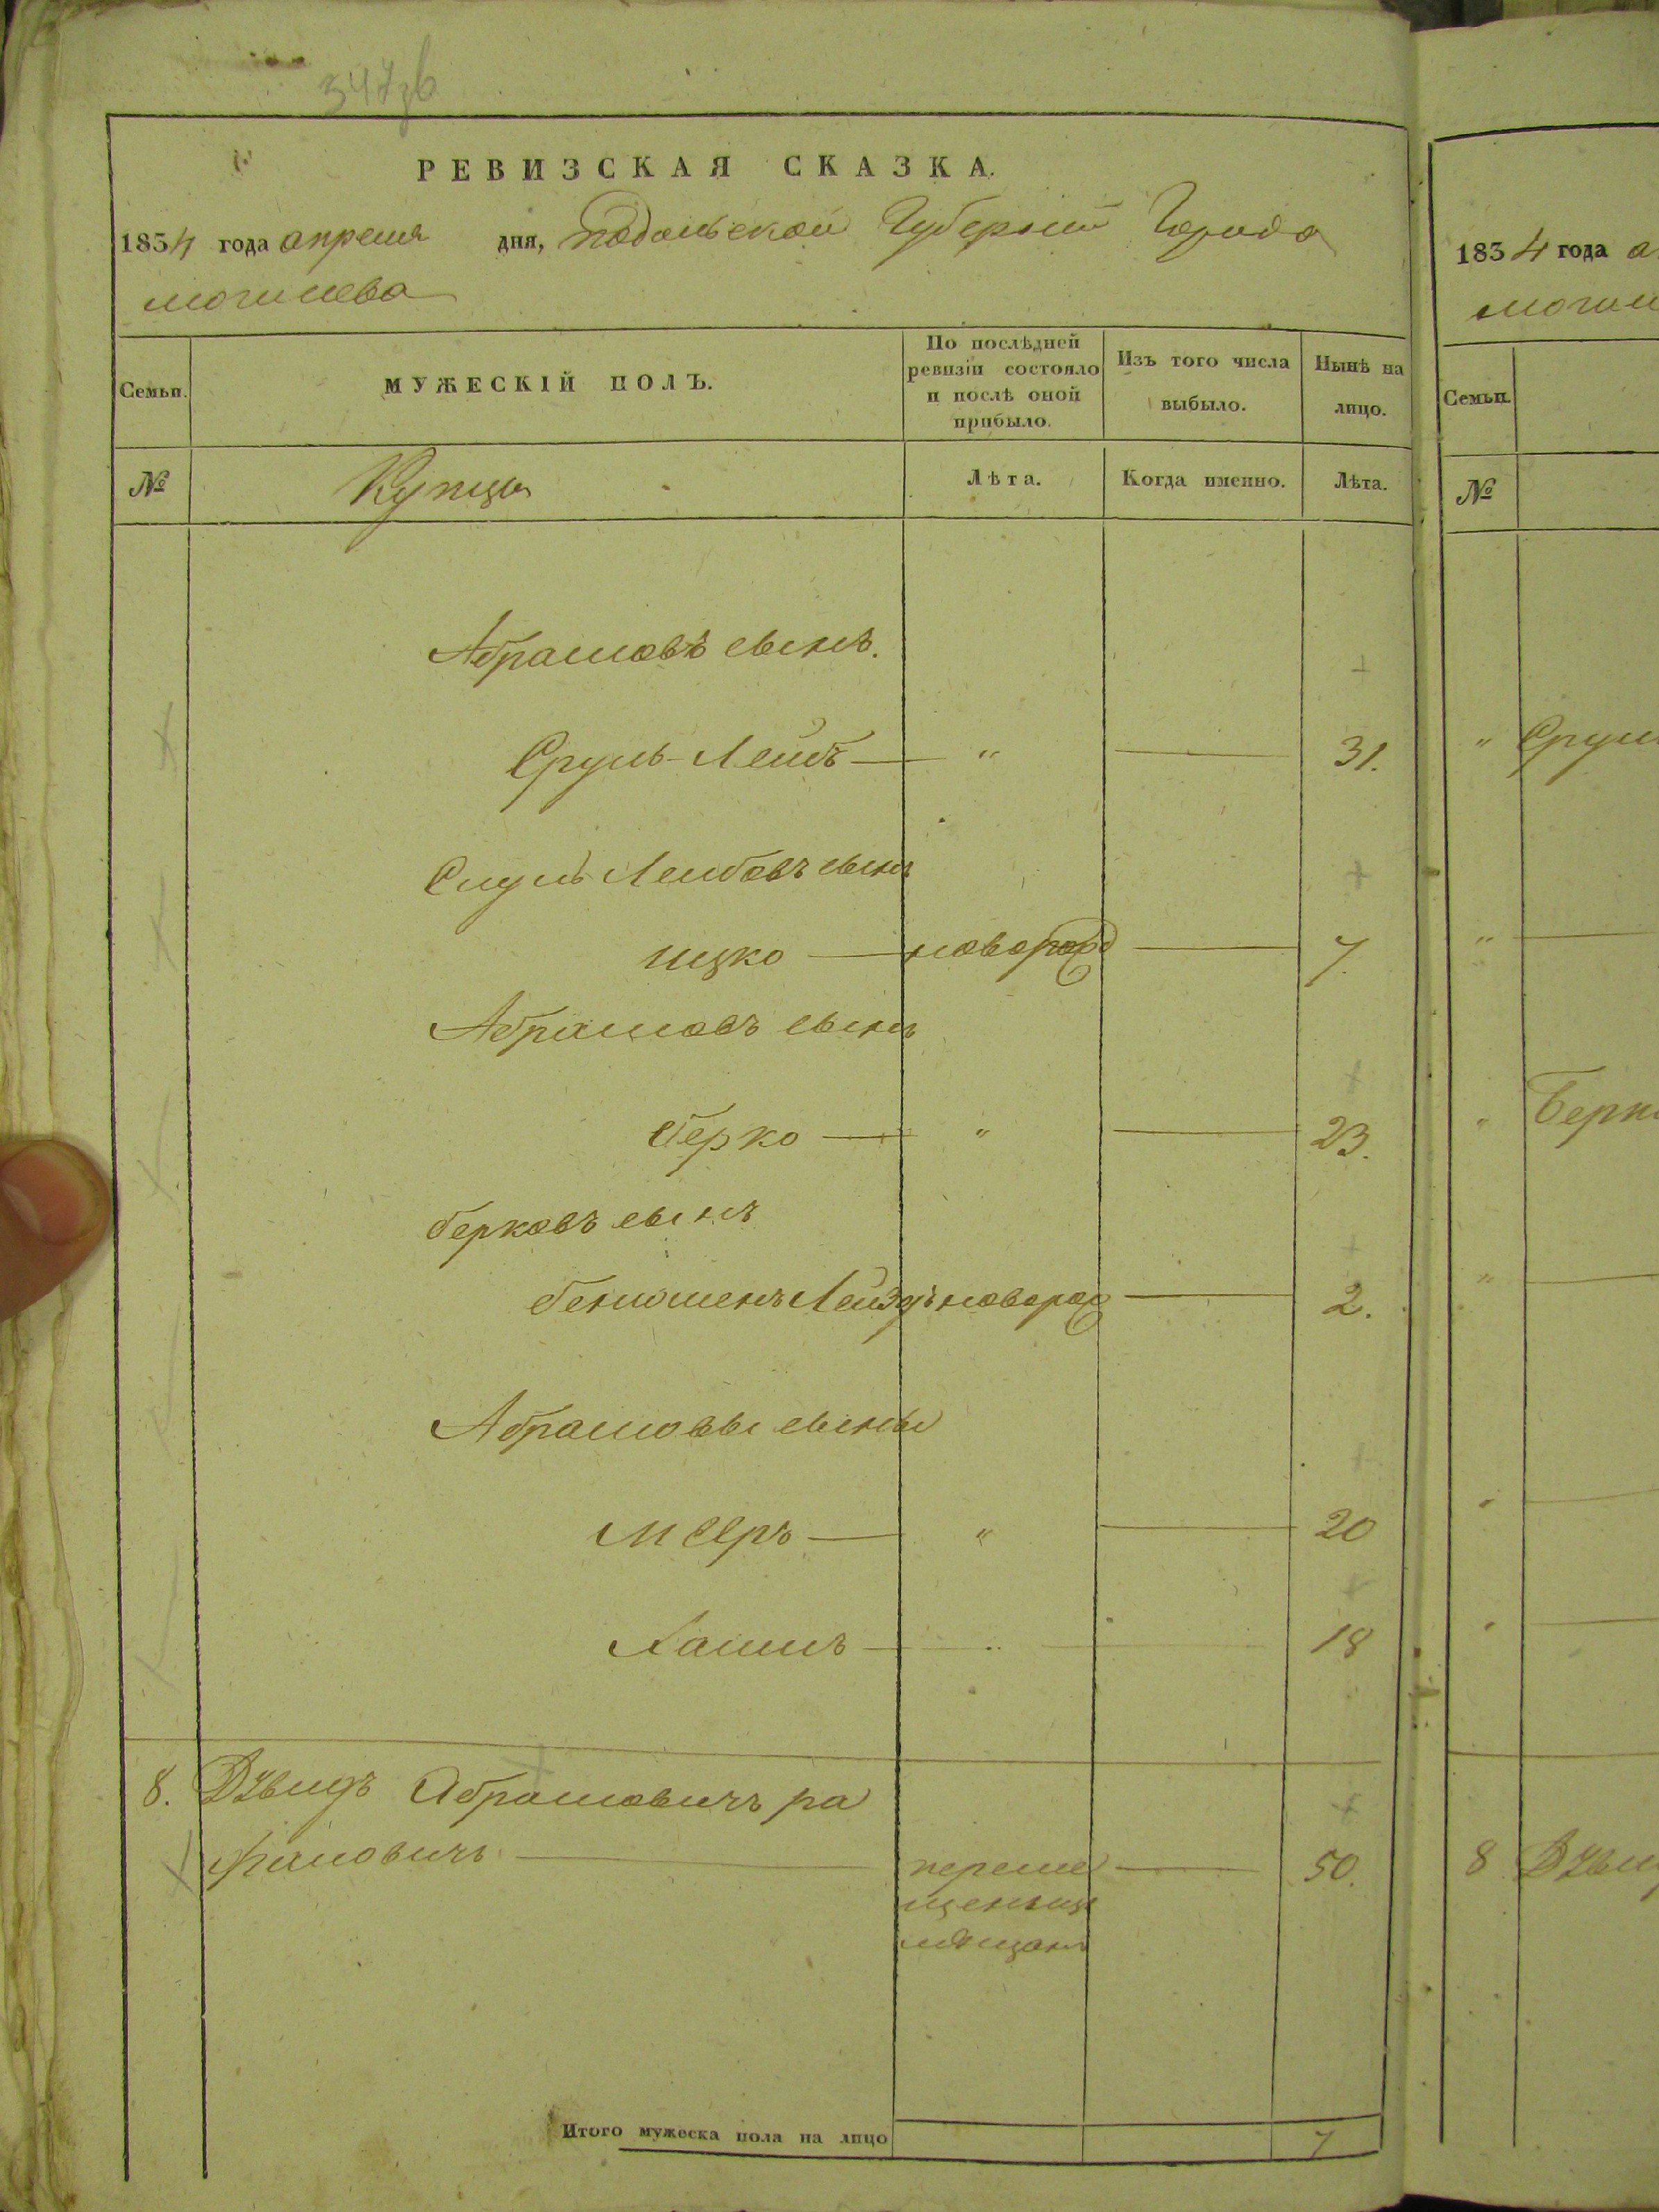 РЕВИЗСКАЯ СКАЗКА.
1834 года апреля дня, подольской Губернии Города
могилева
Семьи.
МУЖЕСКІЙ ПОЛЪ.
По послѣдней
ревизіи состояло
и послѣ оной
прибыло.
Изъ того числа
выбыло.
Нынѣ на
лицо.
№
Купцы
Лѣта.
Когда именно.
Лѣта.
Абрамовъ сынъ.
Сруль-Лейбъ — " — 31.
Сруль Лейбовъ сынъ
ицко — новорожд — 7.
Абрамовъ сынъ
берко — " — 23.
берковъ сынъ
бениоменъ новорож — 2.
Абрамовы сыны
мееръ — " — 20
Хаимъ — " — 18
8. Дувидъ Абрамовичъ ра
фаловичъ — переме — 50.
щен
мѣщанъ
Итого мужеска пола на лицо 7
1834 года а
могил
Семьи.
№
" Сруль
"
" Берк
"
"
"
8 Дуви